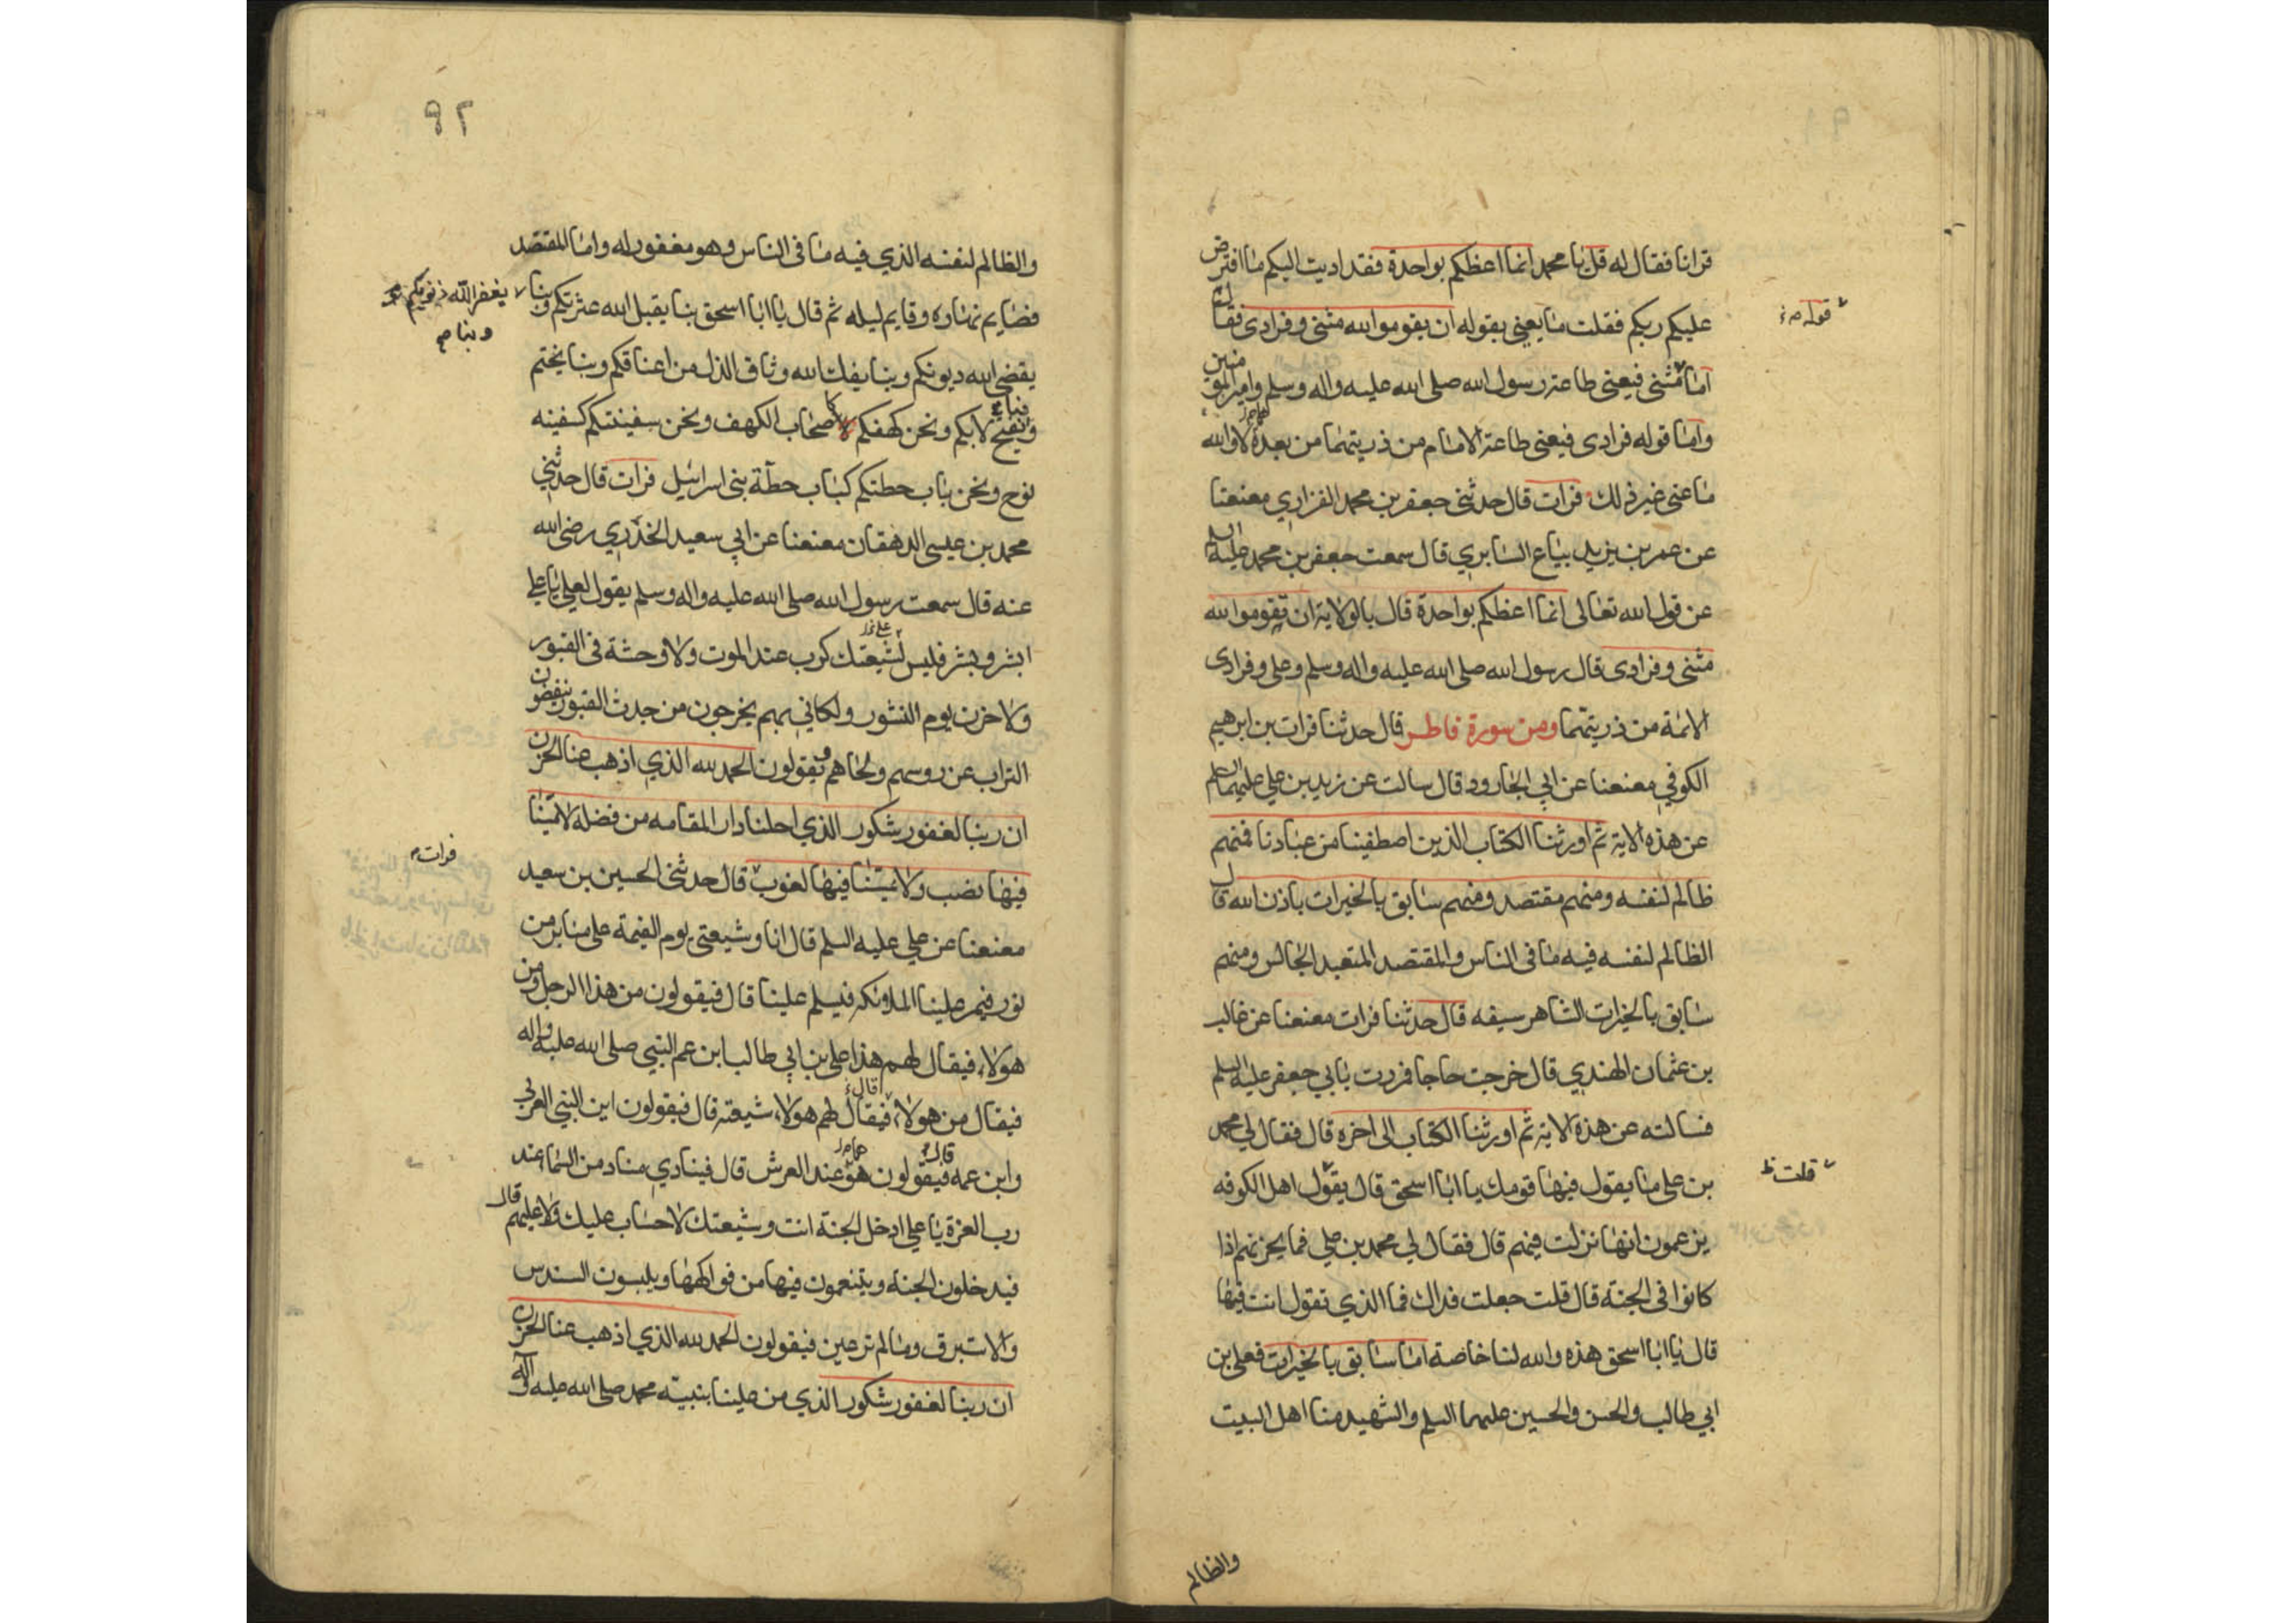 قرانا فقال له قل يا محمد انما اعظكم بواحدة فقد اديت اليكم ما افترض
عليكم ربكم فقلت ما يعني بقوله ان يقوموا لله مثنى وفرادى فقال
قوله
اما مثنى فيعني طاعة رسول الله صلى الله عليه واله وسلم وامير المومنين
واما قوله فرادى فيعني طاعة الامام من ذريتهما من بعده لا والله
ما عنى غير ذلك فرات قال حدثني جعفر بن محمد الفزاري معنعنا
عن عمر بن يزيد بياع السابري قال سمعت جعفر بن محمد عليه السلم
عن قول الله تعالى انما اعظكم بواحدة قال بالولاية ان تقوموا لله
مثنى وفرادى قال رسول الله صلى الله عليه واله وسلم وعلي وفرادى
الائمة من ذريتهما ومن سورة فاطر قال حدثنا فرات بن ابرهيم
الكوفي معنعنا عن ابي الجارود قال سالت عن زيد بن علي عليهما السلم
عن هذه الاية ثم اورثنا الكتاب الذين اصطفينا من عبادنا فمنهم
ظالم لنفسه ومنهم مقتصد ومنهم سابق بالخيرات باذن الله قال
الظالم لنفسه فيه ما في الناس والمقتصد المتعبد الجالس ومنهم
سابق بالخيرات الشاهر سيفه قال حدثنا فرات معنعنا عن غالب
بن عثمان الهندي قال خرجت حاجا فمررت بابي جعفر عليه السلم
فسالته عن هذه الاية ثم اورثنا الكتاب الى اخره قال فقال لي محمد
بن علي ما يقول فيها قومك يا ابا اسحق قال يقول اهل الكوفه
قلت
يزعمون انها نزلت فيهم قال فقال لي محمد بن علي فما يحزنهم اذا
كانوا في الجنة قال قلت جعلت فداك فما الذي تقول انت فيها
قال يا ابا اسحق هذه والله لنا خاصة اما سابق بالخيرات فعلي بن
ابي طالب والحسن والحسين عليهما السلم والشهيد منا اهل البيت
والظالم
٩٢
والظالم لنفسه الذي فيه ما في الناس وهو مغفور له واما المقتصد
فصايم نهاره وقايم ليله ثم قال يا ابا اسحق بنا يقبل الله عثرتكم وبنا
يغفر الله ذنوبكم
وبنا
يقضي الله ديونكم وبنا يفك الله وثاق الذل من اعناقكم وبنا يختم
وبنا يفتح لا بكم ونحن كهفكم كاصحاب الكهف ونحن سفينتكم كسفينه
نوح ونحن باب حطتكم كباب حطة بني اسرائيل فرات قال حدثني
محمد بن عيسى الدهقان معنعنا عن ابي سعيد الخدري رضي الله
عنه قال سمعت رسول الله صلى الله عليه واله وسلم يقول لعلي يا علي
ابشر وبشر فليس لشيعتك كرب عند الموت ولا وحشة في القبور
ولا حزن يوم النشور ولكاني بهم يخرجون من جدث القبور ينفضون
التراب عن روسهم ولحاهم ويقولون الحمد لله الذي اذهب عنا الحزن
ان ربنا لغفور شكور الذي احلنا دار المقامه من فضله لا يمسنا
فيها نصب ولا يمسنا فيها لغوب قال حدثني الحسين بن سعيد
فرات
معنعنا عن علي عليه السلم قال انا وشيعتي يوم القيمة على منابر من
نور فيمر علينا الملائكه فيسلم علينا قال فيقولون من هذا الرجل ومن
هولاء فيقال لهم هذا علي بن ابي طالب ابن عم النبي صلى الله عليه واله
فيقال من هولاء فيقال لهم هولاء شيعته قال فيقولون اين النبي العربي
وابن عمه فيقولون هو عند العرش قال فينادي مناد من السماء عند
رب العزة يا علي ادخل الجنة انت وشيعتك لا حساب عليك ولا عليهم قال
فيدخلون الجنه ويتنعمون فيها من فواكهها ويلبسون السندس
والاستبرق وما لم ترعين فيقولون الحمد لله الذي اذهب عنا الحزن
ان ربنا لغفور شكور الذي من علينا بنبيه محمد صلى الله عليه واله